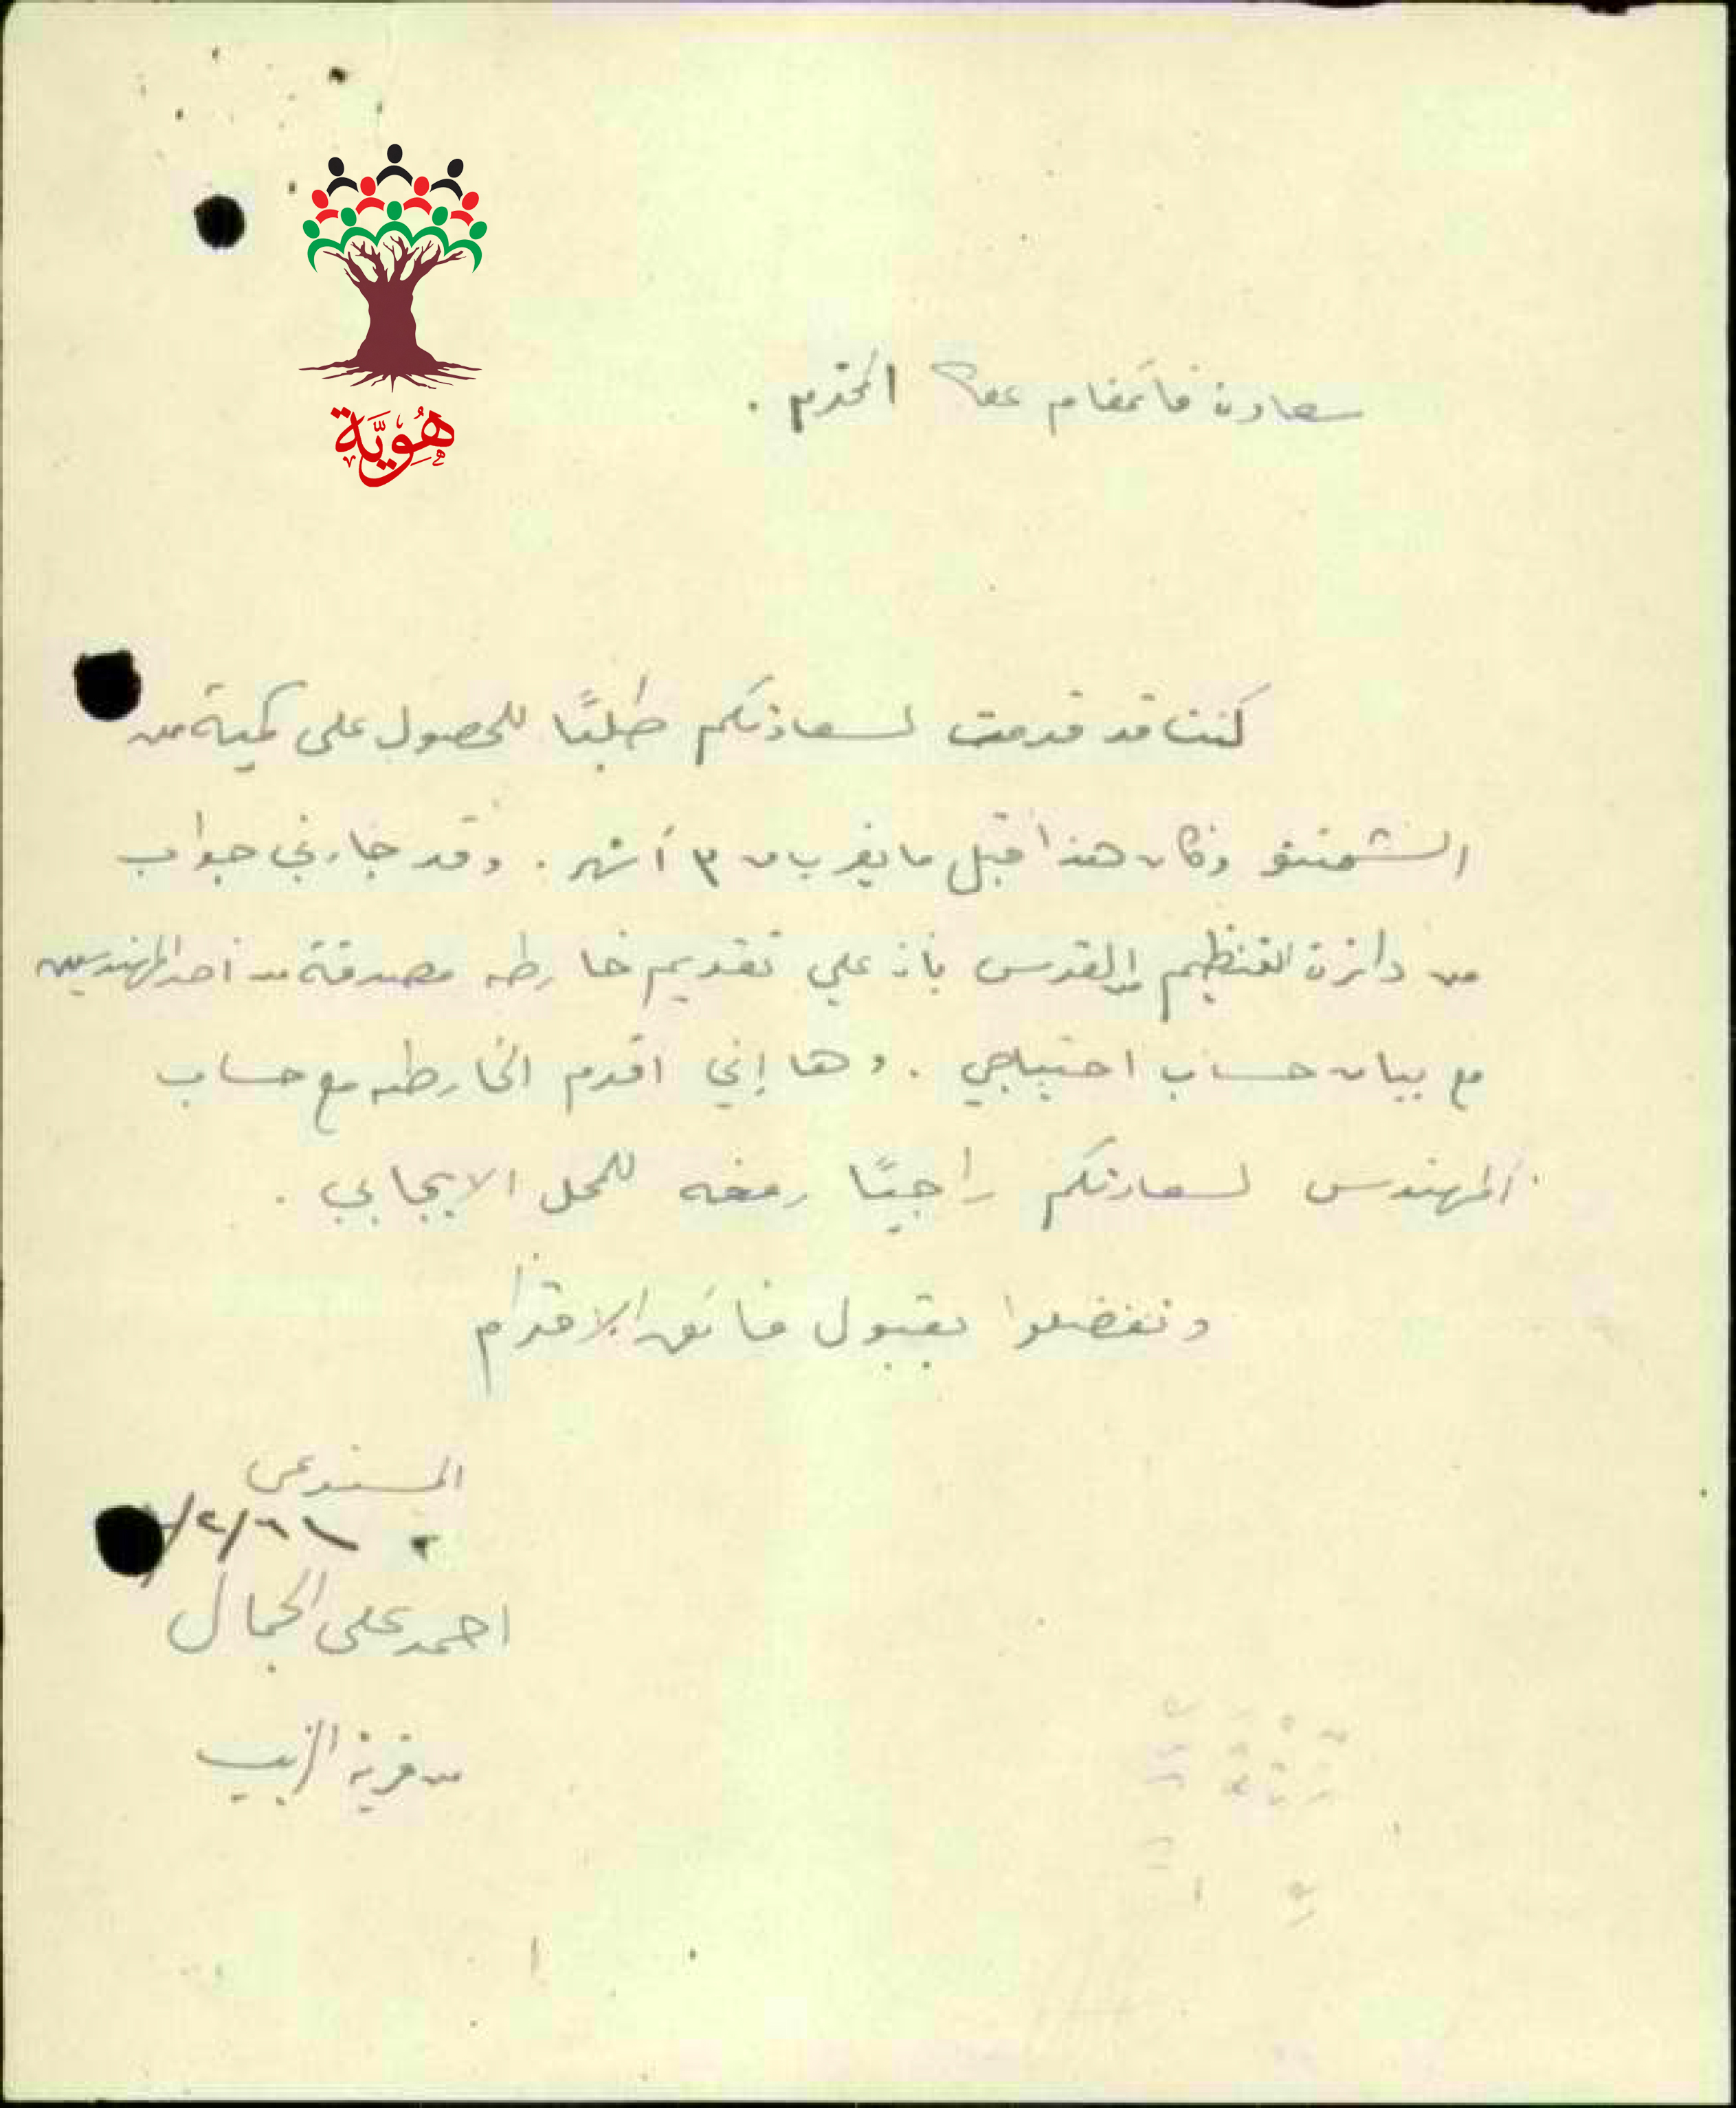 هُوِيَّة
سعادة قائمقام عكا المحترم .
كنت قد قدمت لسعادتكم طلبًا للحصول على كمية من
الشمنتو وكان هذا قبل ما يقرب من ٣ أشهر . وقد جاءني جواب
من دائرة التنظيم بالقدس بأن علي تقديم خارطه مصدقة من أحد المهندسين
مع بيان حساب احتياجي . وها إني اقدم الخارطه مع حساب
المهندس لسعادتكم راجيًا رفعه للمحل الايجابي .
وتفضلوا بقبول فائق الاحترام
المستدعي
احمد علي الجمال
من قرية الزيب